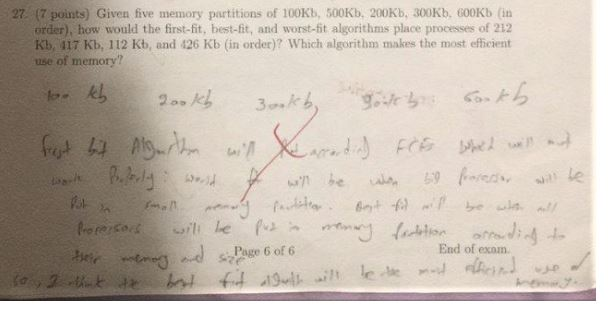 27. (7 points) Given five memory partitions of 100Kb, 500Kb, 200Kb, 300Kb, 600Kb (in
order), how would the first-fit, best-fit, and worst-fit algorithms place processes of 212
Kb, 417 Kb, 112 Kb, and 426 Kb (in order)? Which algorithm makes the most efficient
use of memory?
100 kb 200 kb 300 kb, 600 kb
first fit Algorithm will according FCFS will not
work Properly: world fit will be when big Processor will be
Put in small memory Partition. Best fit will be when all
Processors will be Put in memory Partition according to
their memory and size
Page 6 of 6
End of exam.
so, I think the best fit will be the most efficient use of
memory.